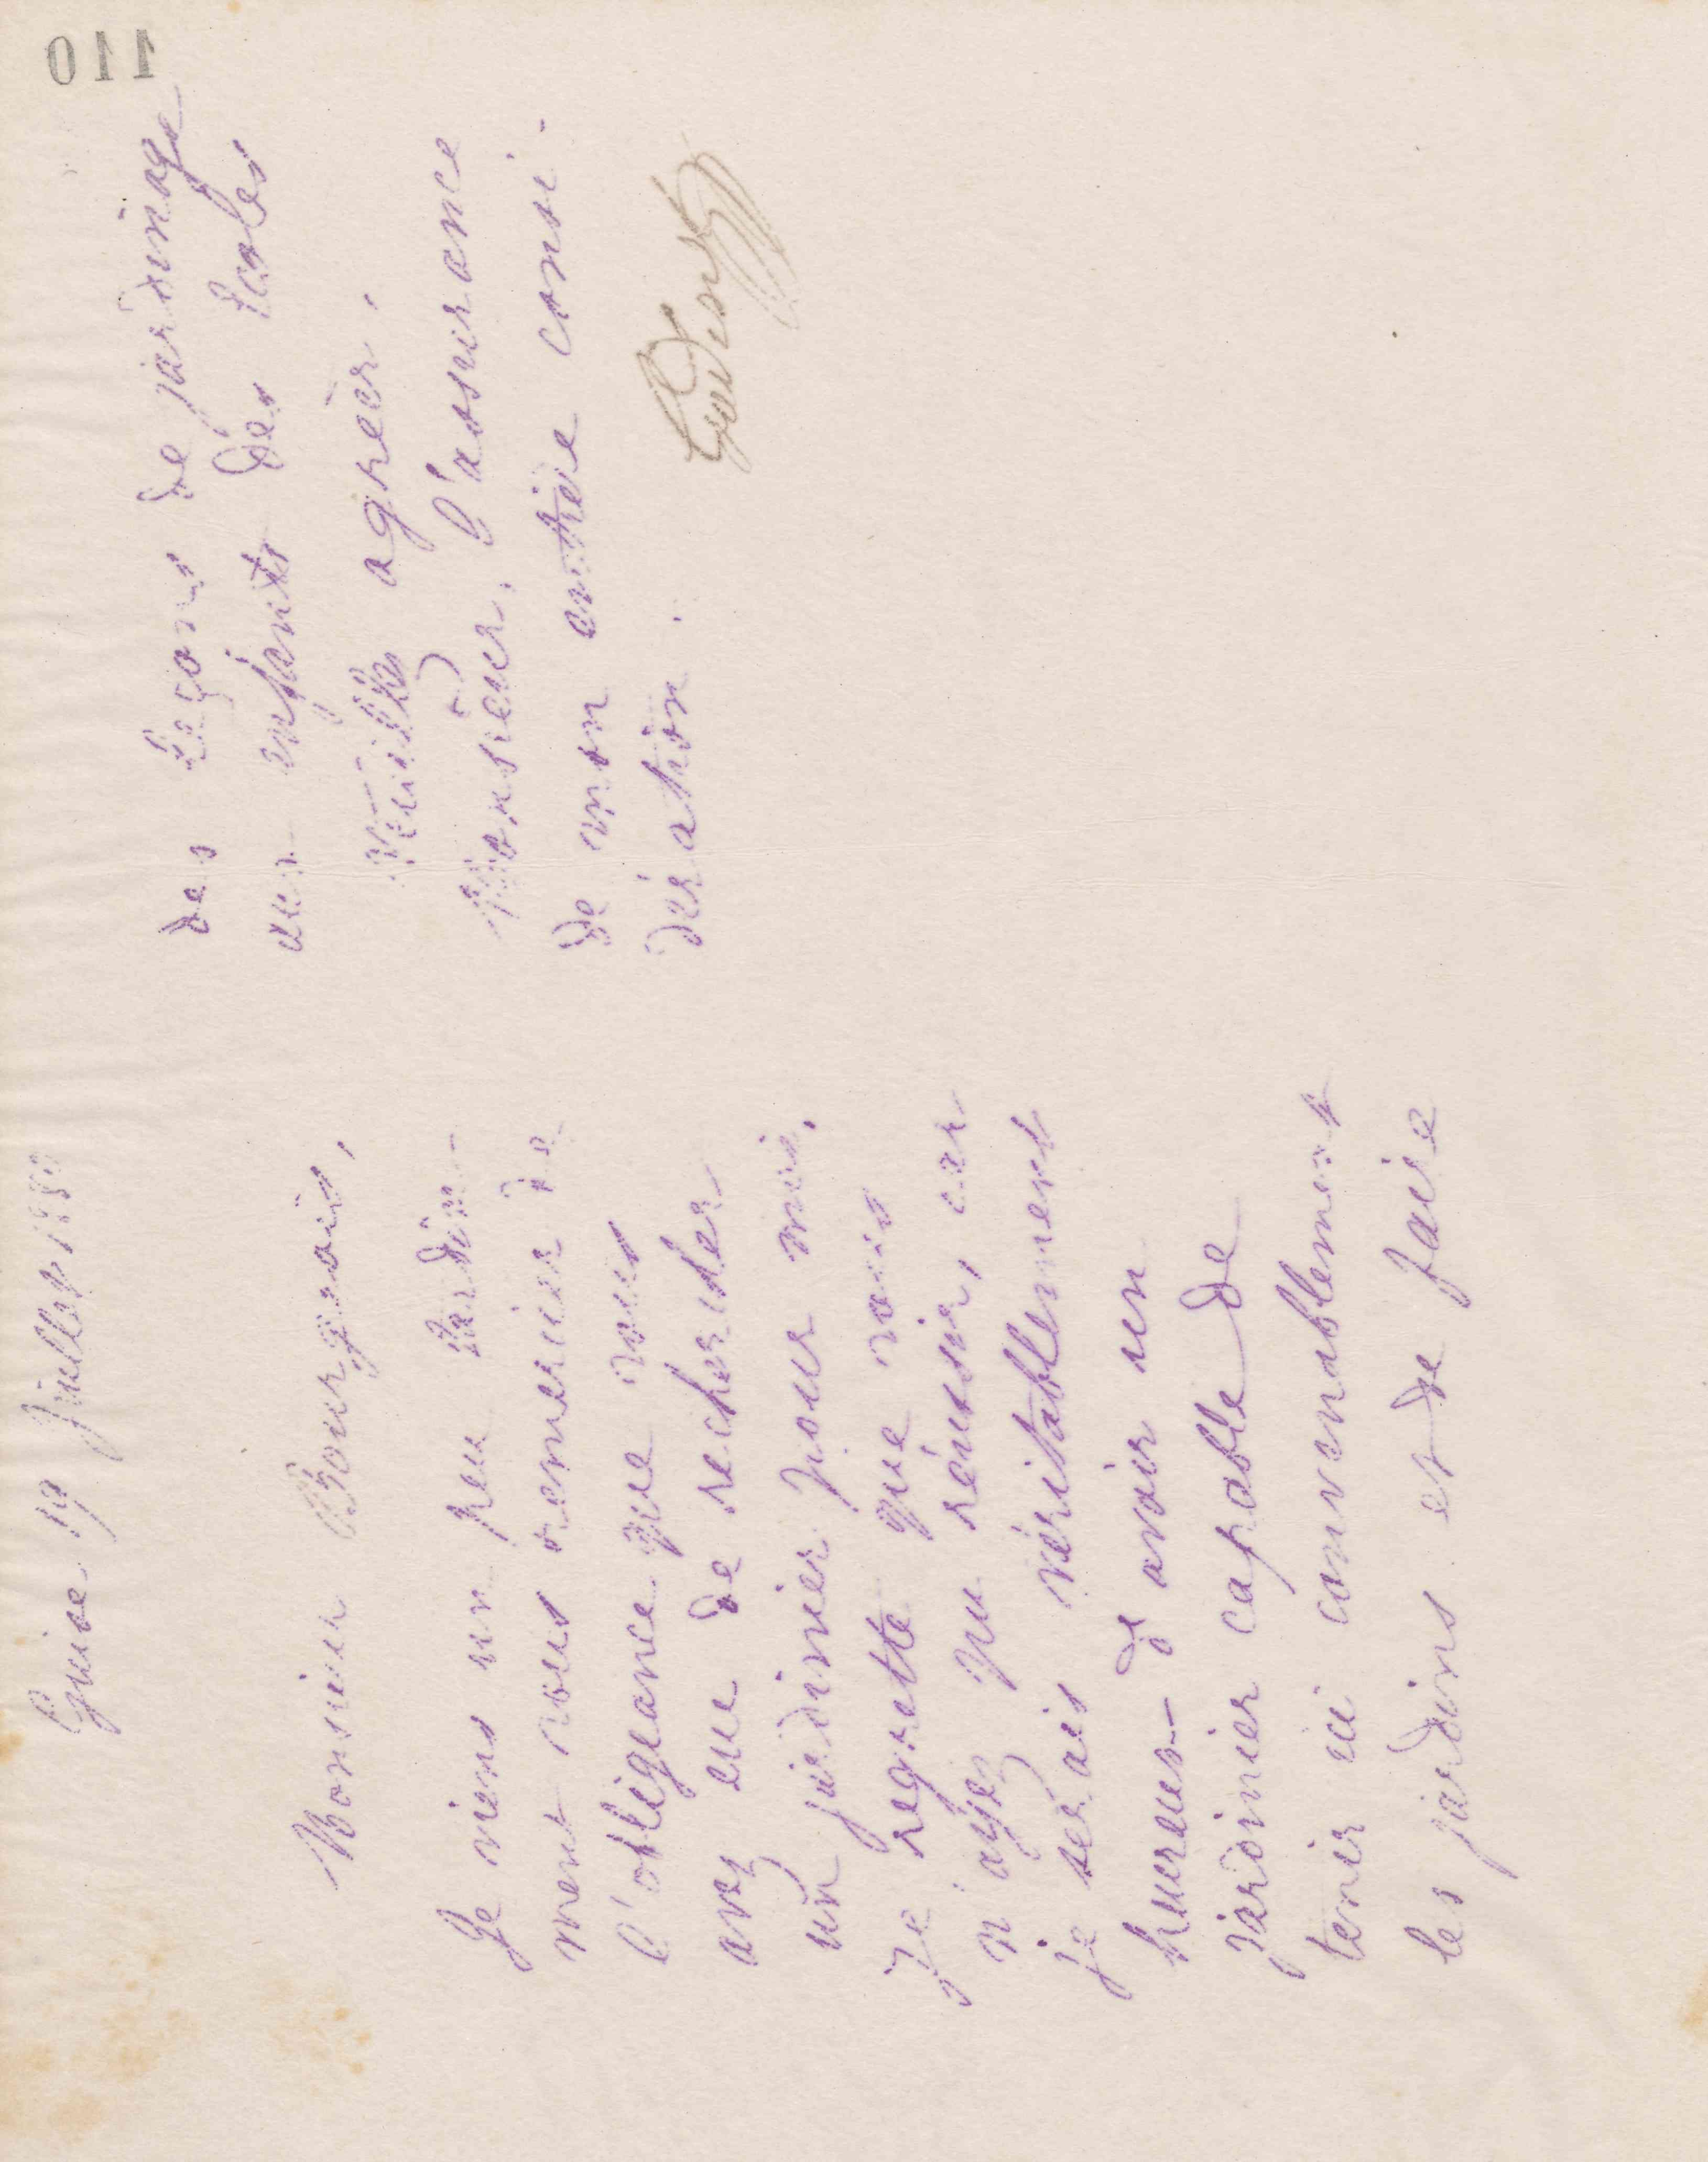 110
Guise 19 Juillet 1880
Monsieur Bourgeois,
Je viens un peu tardive-
ment vous remercier de
l'obligeance que vous
avez eue de rechercher
un jardinier pour moi.
Je regrette que vous
n'ayez pu réussir, car
je serais véritablement
heureux d'avoir un
jardinier capable de
tenir ici convenablement
les jardins et de faire
des leçons de jardinage
aux enfants des écoles
Veuillez agréer,
Monsieur, l'assurance
de mon entière consi-
dération.
Godin